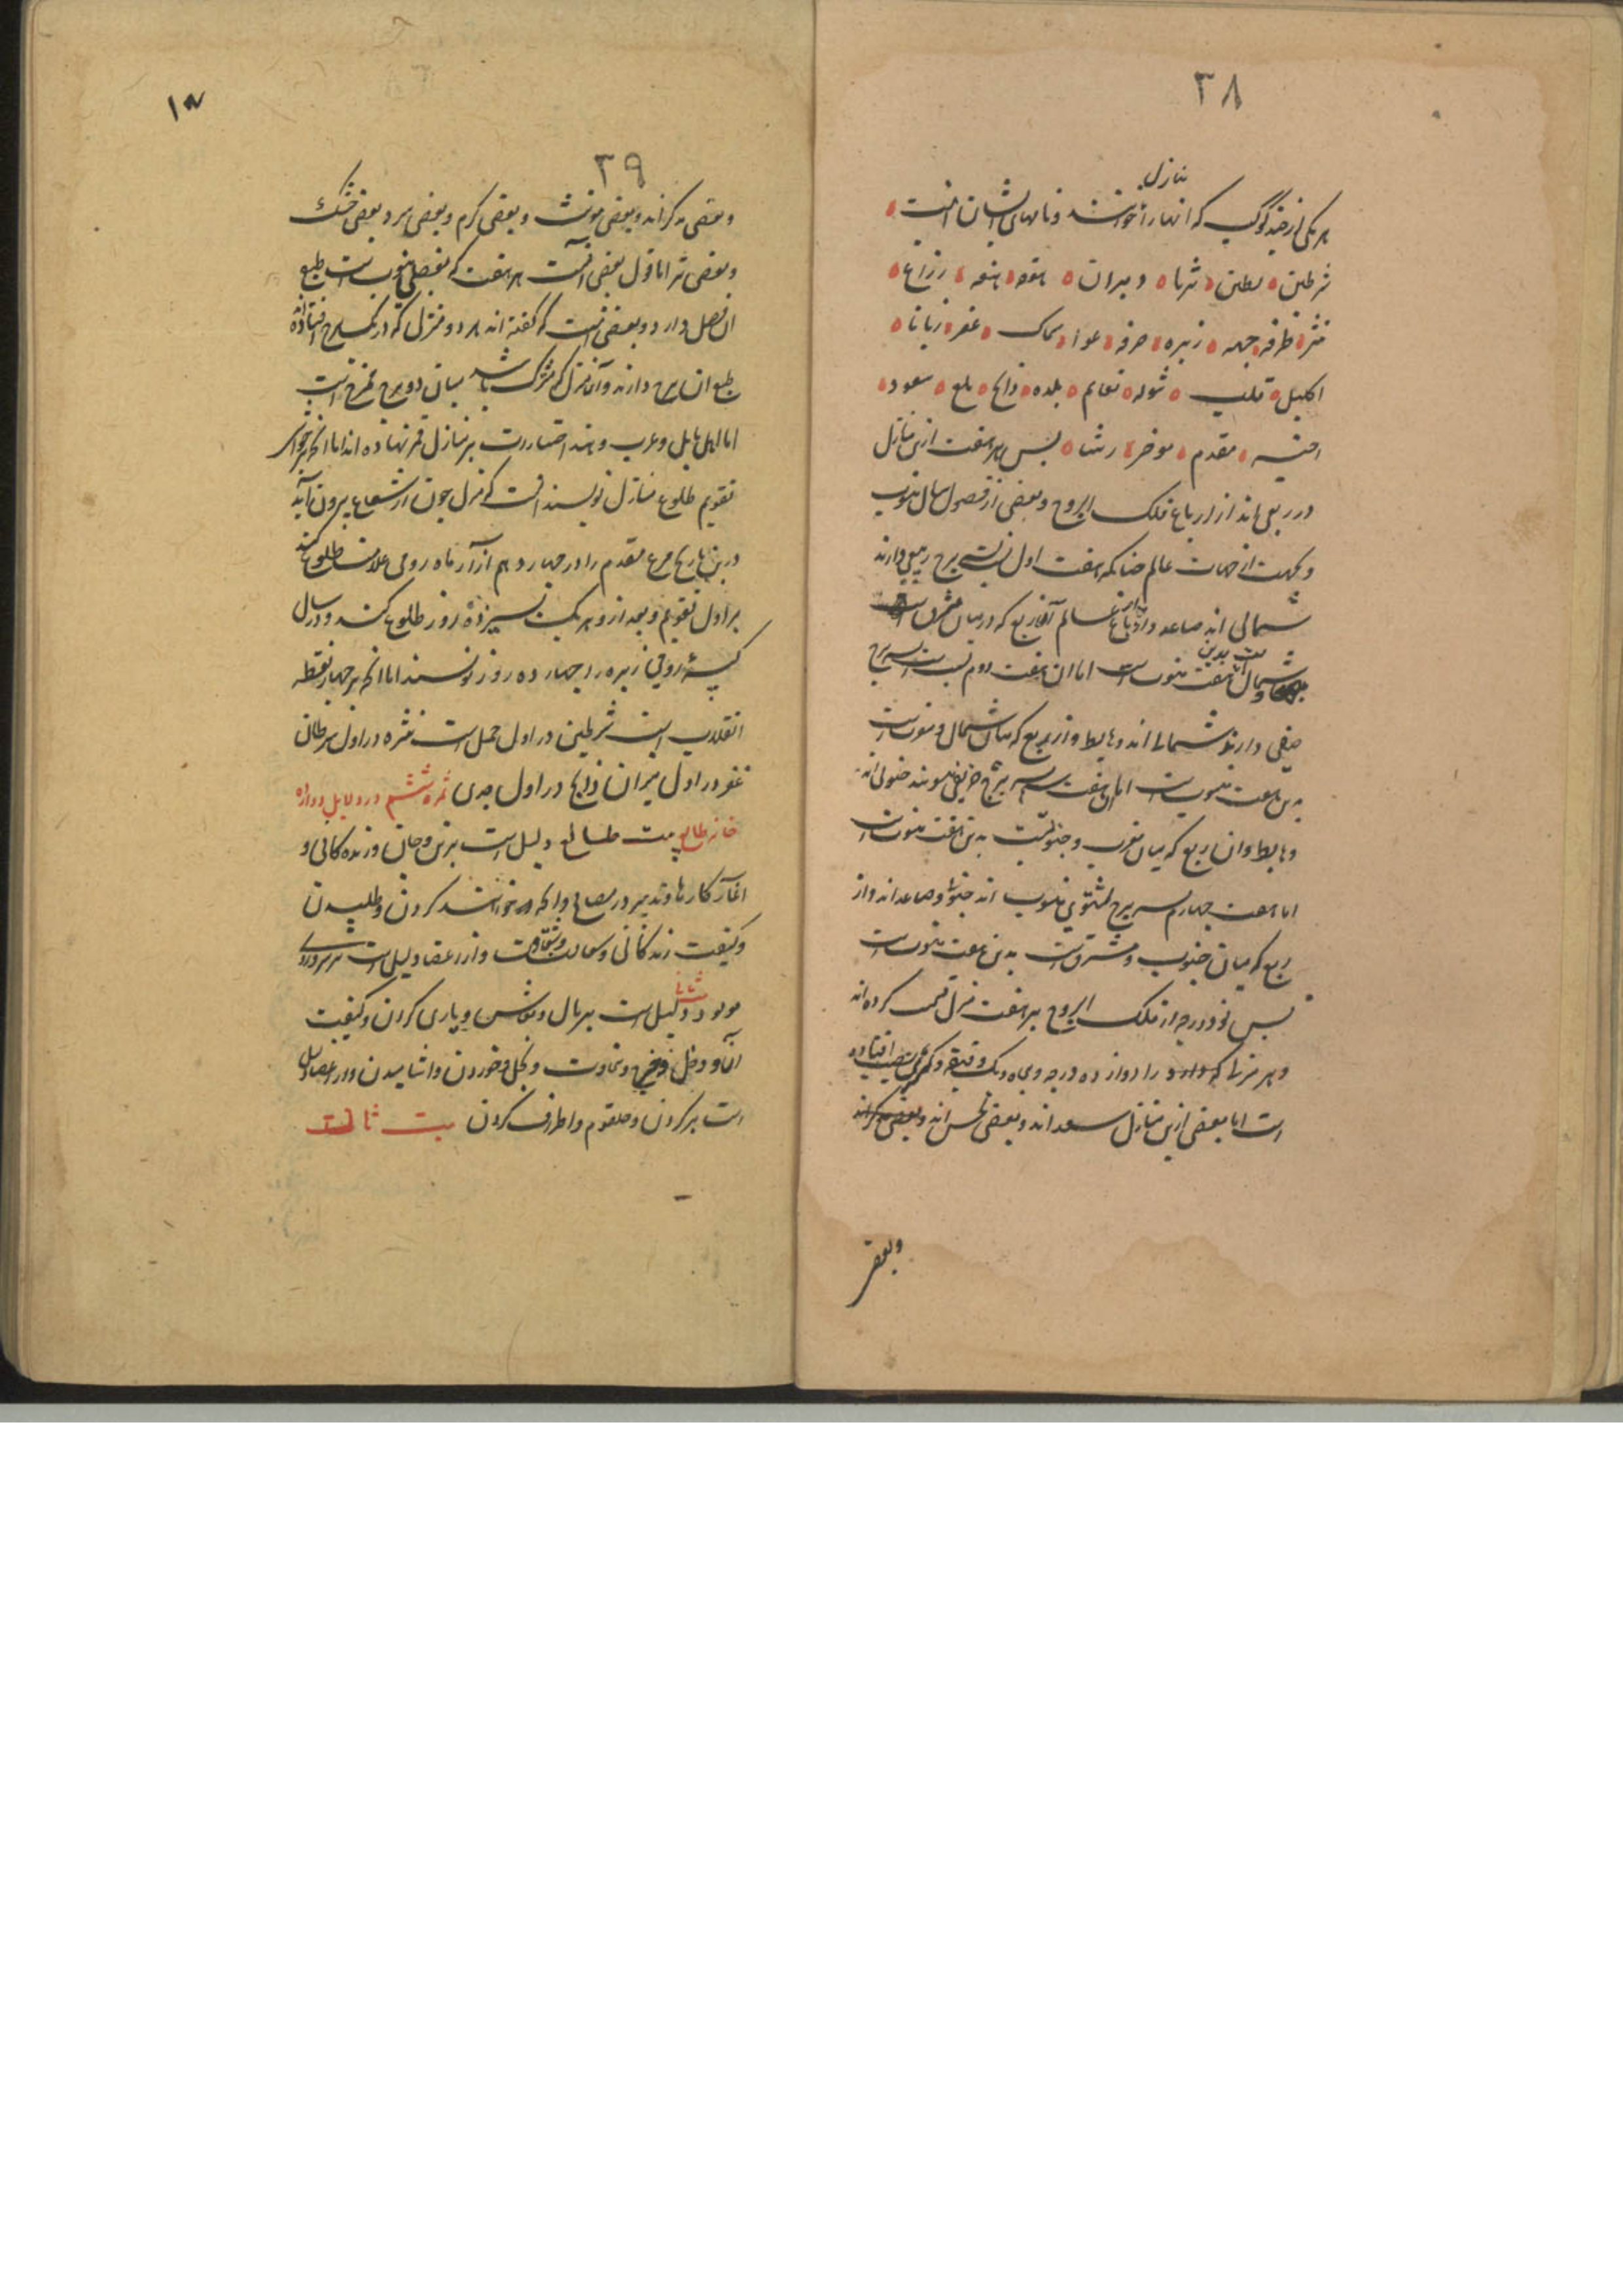 ۳۸
منازل
هر یکی از چند کوکب که آنها را خوانند و نامهای ایشان اینست
شرطین بطین ثریا دبران هقعه هنعه ذراع
نثره طرفه جبهه زبره صرفه عوا سماک غفر زبانا
اکلیل قلب شوله نعایم بلده ذابح بلع سعود
اخبیه مقدم موخر رشا پس هر هفت ازین منازل
در ربعی اند از ارباع فلک البروج و بعضی از فصول سال منسوب
و بجهت از جهات عالم چنانکه هفت اول نسبت به برج ربیعی دارند
شمالی اند صاعد و از ارباع عالم آن ربع که در میان مشرق است
و شمال است بدین هفت منسوب است اما آن هفت دوم نسبت به سه برج
صیفی دارند شمالی اند و هابط و از ربع که میان شمال و مغرب است
بدین هفت منسوب است اما آن هفت سیم به سه برج خریفی منسوبند جنوبی اند
و هابط و آن ربع که میان مغرب و جنوبست بدین هفت منسوب است
اما هفت چهارم سه برج شتوی منسوب اند جنوبی و صاعد اند و از
ربع که میان جنوب و مشرق است بدین هفت منسوب است
پس نود درجه از فلک البروج بر هفت منزل قسمت کرده اند
و هر منزلی که را دوازده درجه و پنجاه و یک دقیقه و کسری نصیب افتاده
است اما بعضی ازین منازل سعد اند و بعضی نحس اند و بعضی مذکراند
وبعضی
۱۸
۳۹
و بعضی مذکر اند و بعضی مونث و بعضی گرم و بعضی سرد و بعضی خشک
و بعضی تر اما قول بعضی آنست هر هفت که بفصلی منسوب است طبع
آن فصل دارد و بعضی آنست که گفته اند هر دو منزل که در یک برج افتاده اند
طبع آن برج دارند و آن منزل که مشترک باشد میان دو برج ممتزج است
اما اهل بابل و عرب و هند اختیارات بر منازل قمر نهاده اند اما آنکه بر حواشی
تقویم طلوع منازل نویسند آنست که منزل چون از شعاع بیرون آید
درین تاریخ فرع مقدم را در چهاردهم از آذار ماه رومی علامت طلوع کنند
بر اول تقویم و بعد از و هر یک بسیزده روز طلوع کنند و در سال
کبیسه رومی زبره را چهارده روز نویسند اما آنکه بر چهار نقطه
انقلاب است شرطین در اول حمل است نثره در اول سرطان
غفر در اول میزان ذابح در اول جدی ثمره ششم در دلایل دوازده
خانه طالع بیت طالع دلیل است بر تن و جان و زندگانی و
آغاز کارها و تدبیر در مصالح و آنکه خواهند کردن و طلبیدن
و کیفیت زندگانی و سعادت و شقاوت و از اعضا دلیل است بر سر و روی
مولود ثانی دلیل است بر مال و معاش و یاری کردن و کیفیت
آن و دخل و خرج و سخاوت و بخل و خوردن و آشامیدن و از اعضا دلیل
است بر گردن و حلقوم و اطراف گردن بیت ثالث